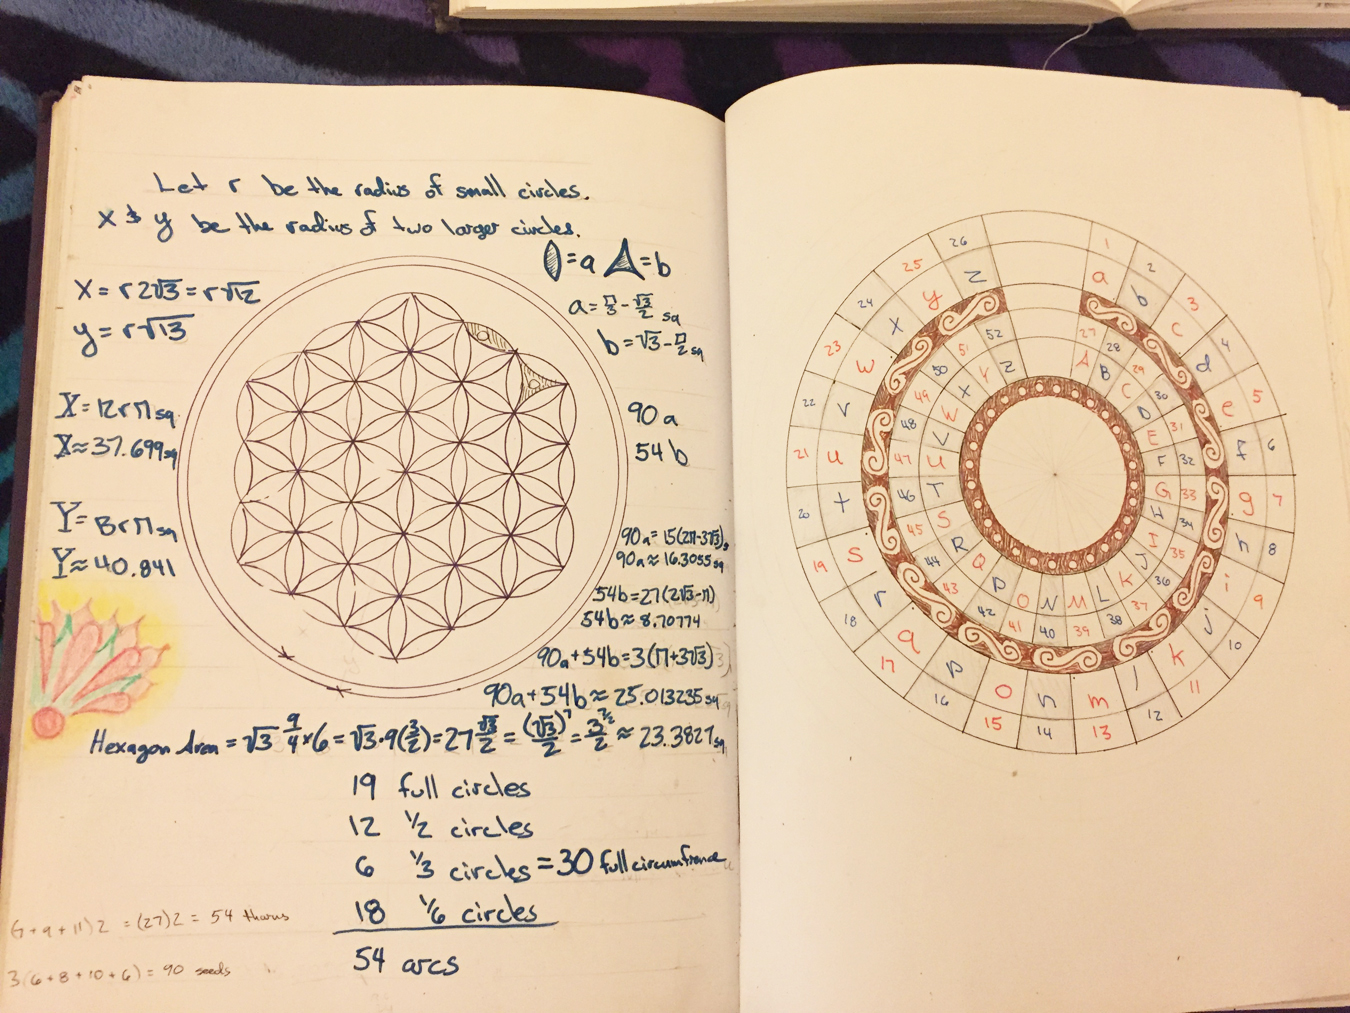 Let r be the radius of small circles.
X & y be the radius of two larger circles.
=a =b
X = r2√3 = r√12
y = r√13
a = π/3 - √3/2 sq
b = √3 - π/2 sq
a
b
X = 12rπ sq
X ≈ 37.699 sq
90 a
54 b
Y = 13rπ sq
Y ≈ 40.841
90a = 15(2π-3√3)
90a ≈ 16.3055 sq
54b = 27(2√3-π)
54b ≈ 8.70774
90a+54b = 3(π+3√3)
90a+54b ≈ 25.013235 sq
Hexagon Area = √3 9/4 × 6 = √3·9(3/2) = 27 √3/2 = (√3)^7/2 = 3^7/2/2 ≈ 23.3827 sq
19 full circles
12 1/2 circles
6 1/3 circles = 30 full circumfrence
18 1/6 circles
54 arcs
(7+9+11)2 = (27)2 = 54 thorns
3(6+8+10+6) = 90 seeds
1 2 3 4 5 6 7 8 9 10 11 12 13 14 15 16 17 18 19 20 21 22 23 24 25 26
a b c d e f g h i j k l m n o p q r s t u v w x y z
27 28 29 30 31 32 33 34 35 36 37 38 39 40 41 42 43 44 45 46 47 48 49 50 51 52
A B C D E F G H I J K L M N O P Q R S T U V W X Y Z